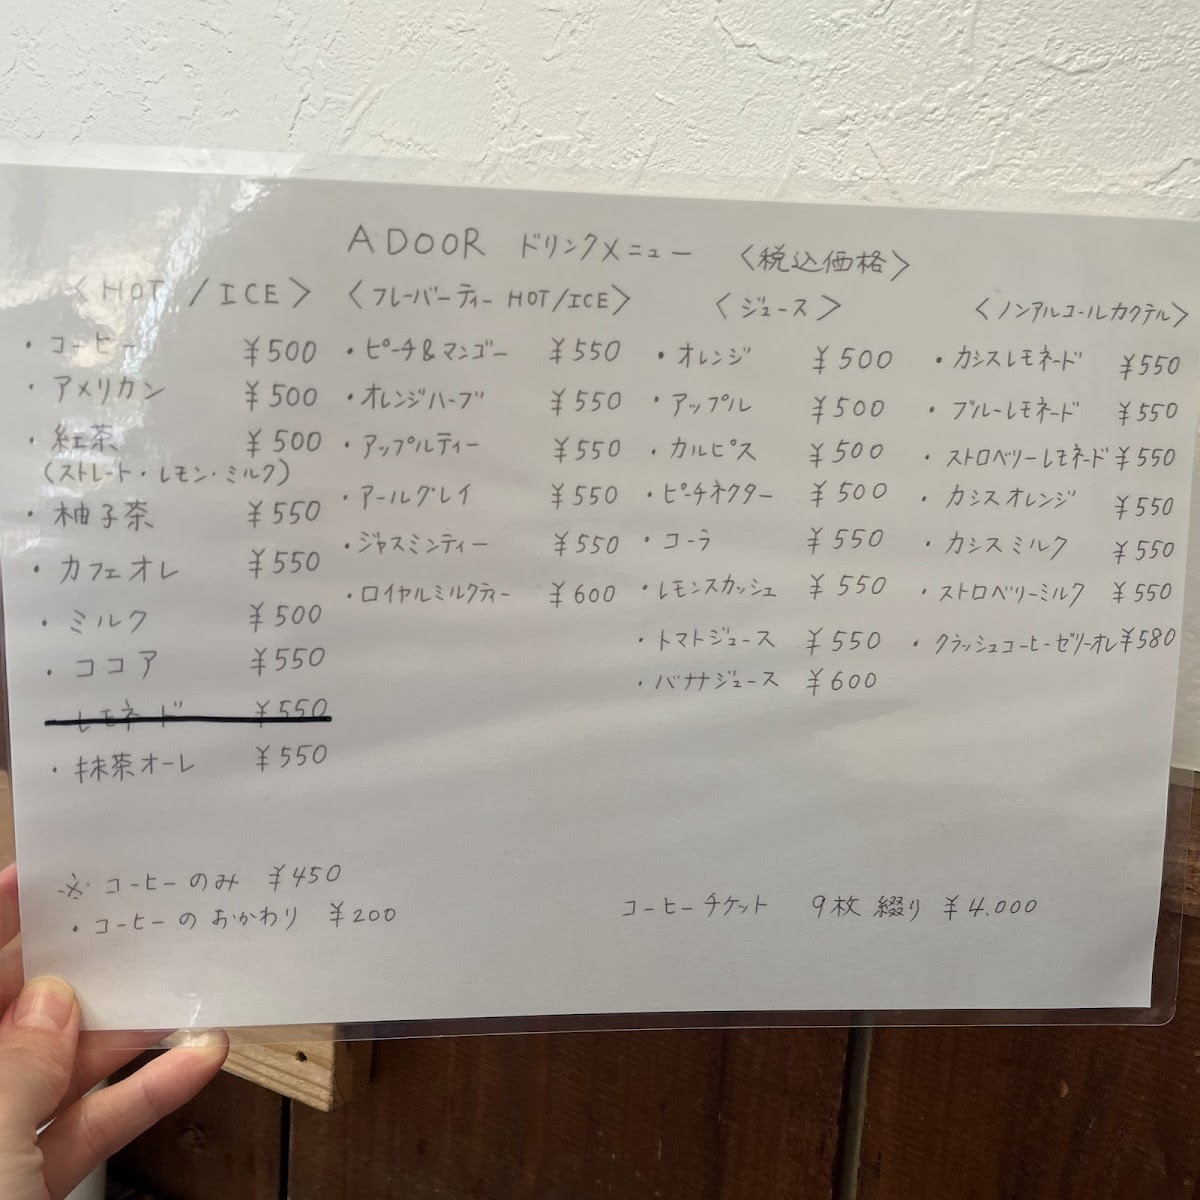 ADOOR ドリンクメニュー 〈税込価格〉
〈HOT/ICE〉
・コーヒー ¥500
・アメリカン ¥500
・紅茶 ¥500
(ストレート・レモン・ミルク)
・柚子茶 ¥550
・カフェオレ ¥550
・ミルク ¥500
・ココア ¥550
レモネード ¥550
・抹茶オーレ ¥550
〈フレーバーティー HOT/ICE〉
・ピーチ&マンゴー ¥550
・オレンジハーブ ¥550
・アップルティー ¥550
・アールグレイ ¥550
・ジャスミンティー ¥550
・ロイヤルミルクティー ¥600
〈ジュース〉
・オレンジ ¥500
・アップル ¥500
・カルピス ¥500
・ピーチネクター ¥500
・コーラ ¥550
・レモンスカッシュ ¥550
・トマトジュース ¥550
・バナナジュース ¥600
〈ノンアルコールカクテル〉
・カシスレモネード ¥550
・ブルーレモネード ¥550
・ストロベリーレモネード ¥550
・カシスオレンジ ¥550
・カシスミルク ¥550
・ストロベリーミルク ¥550
・クラッシュコーヒーゼリーオレ ¥580
※コーヒーのみ ¥450
・コーヒーのおかわり ¥200
コーヒーチケット 9枚綴り ¥4.000